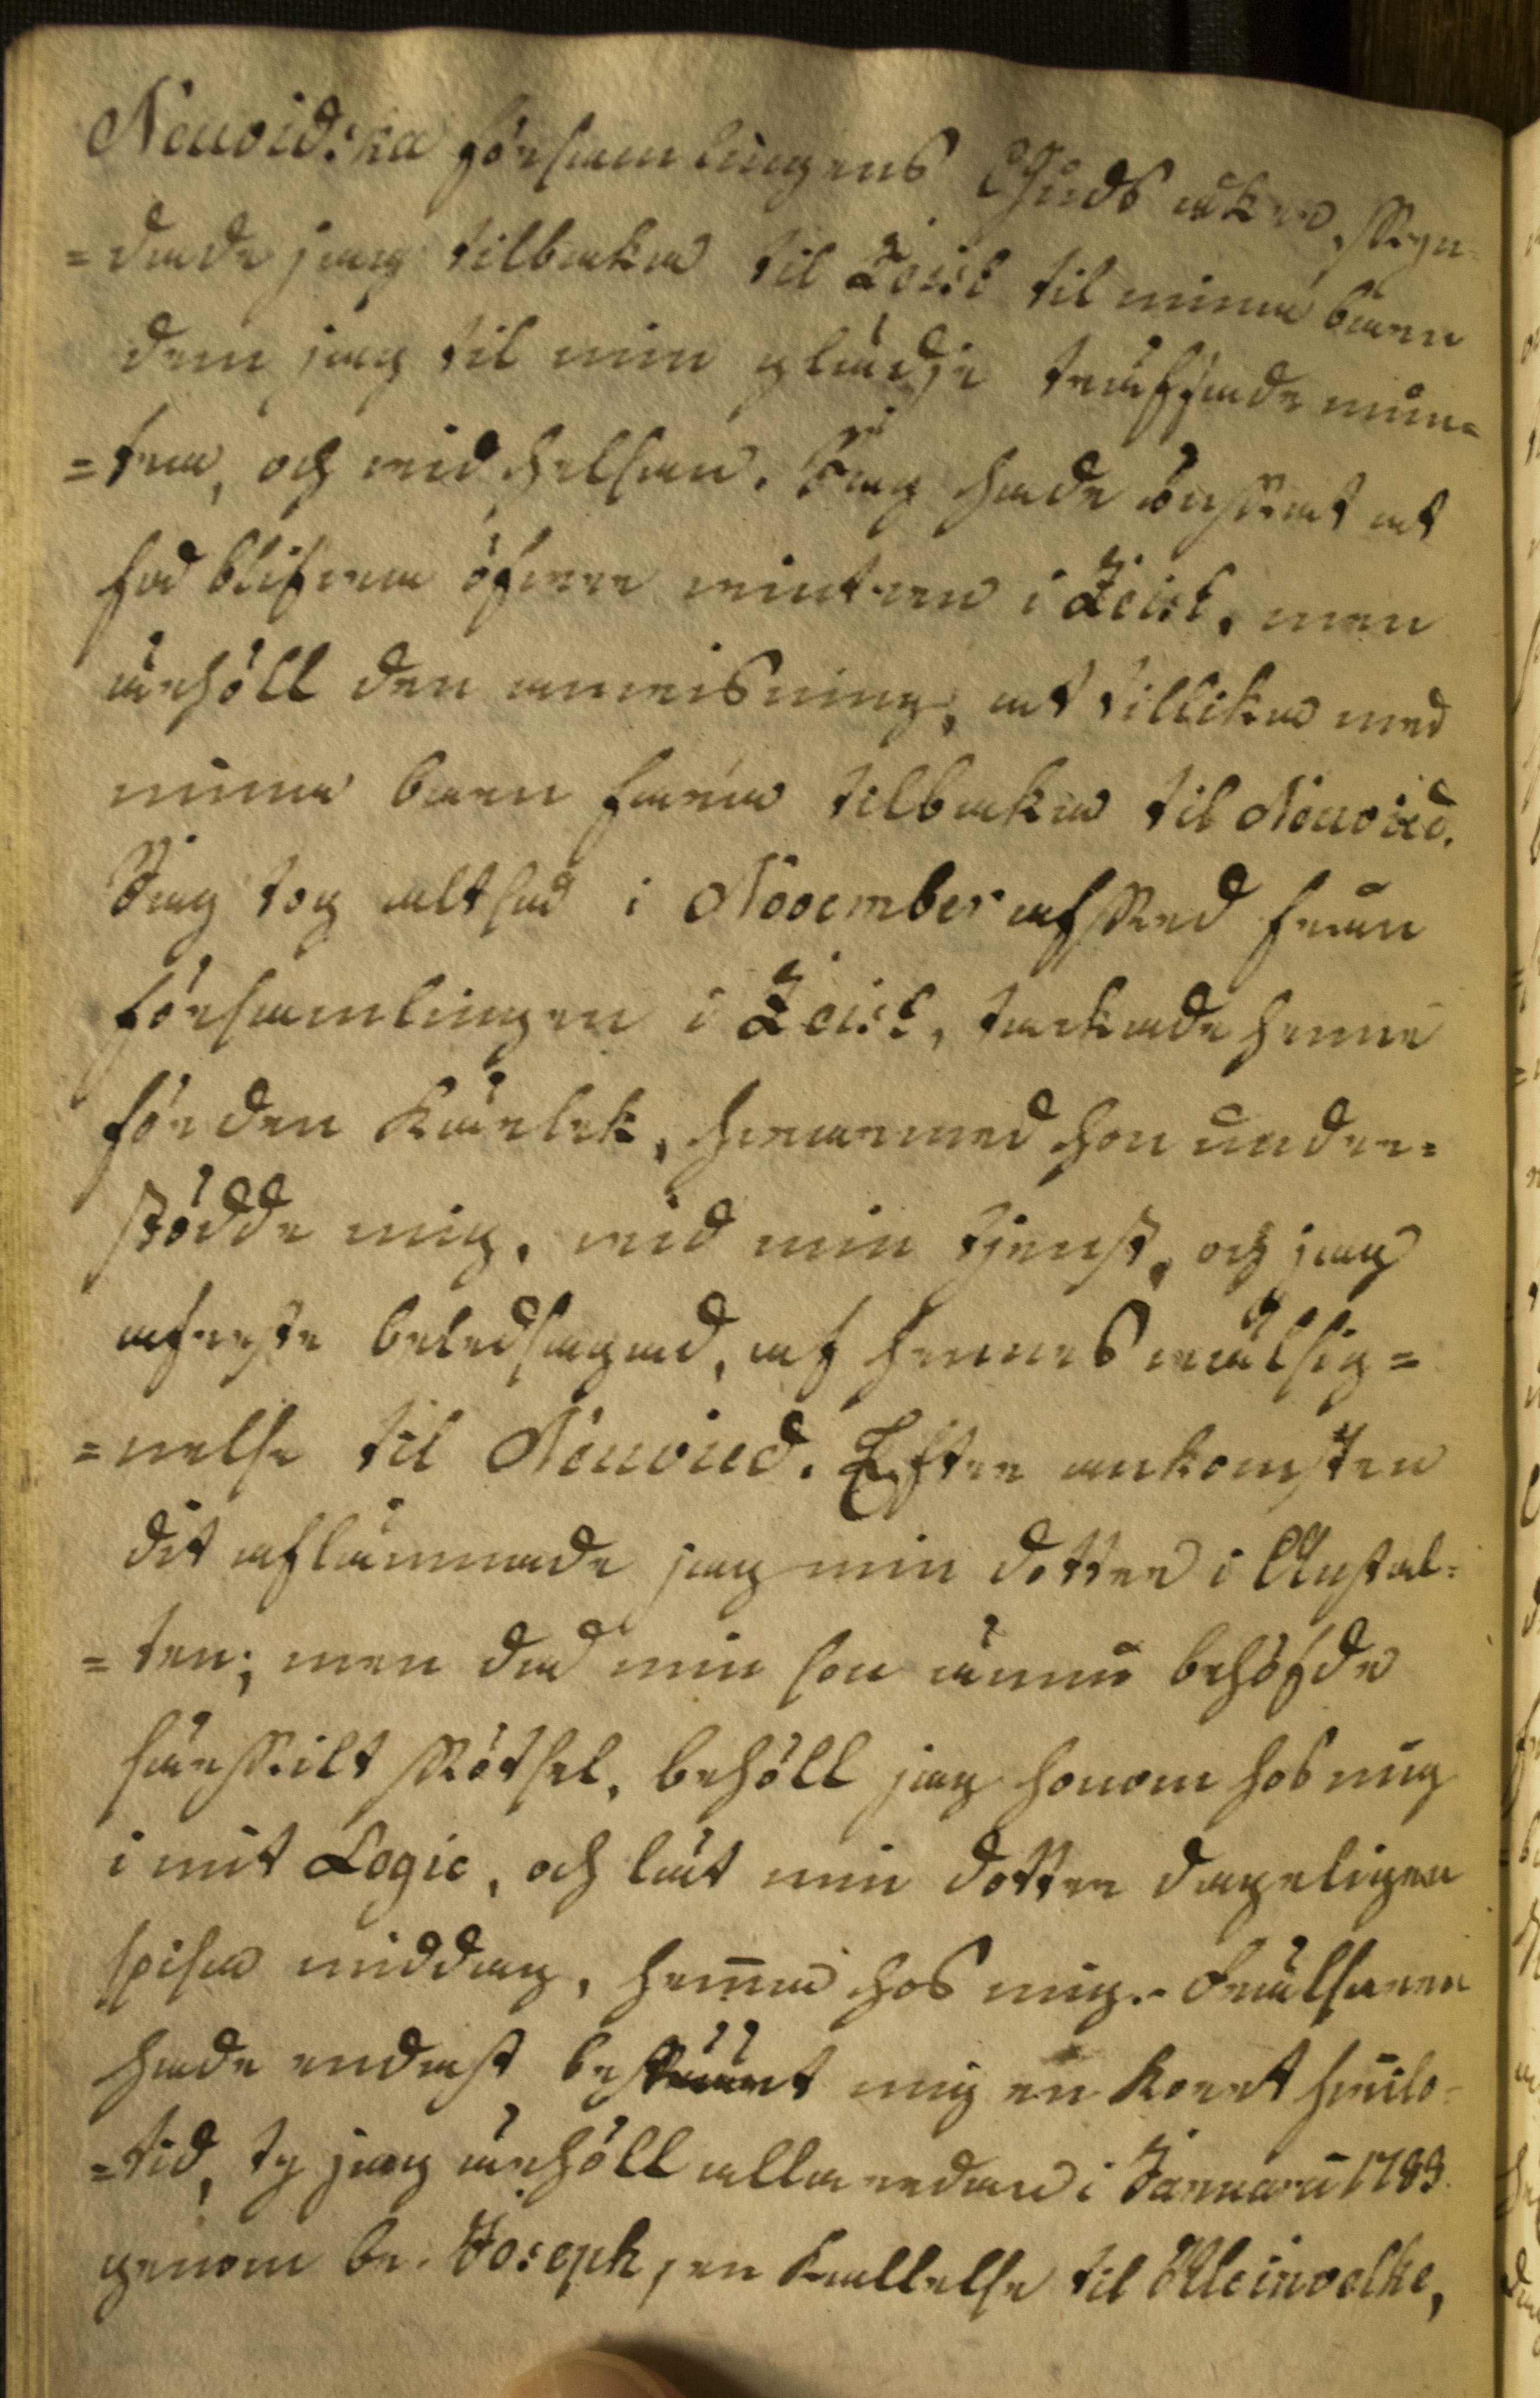 Neuvidska församlingens Guds åker, skyn-
=dade jag tilbaka til Zeist til mina barn
dem jag til min glädje träffade mun=
=tra, och vid helsan. Jag hade önskat at
få blifva öfver vintren i Zeist, men
ärhöll den anvisning, at tillika med
mina barn fara tilbaka til Neuvied.
Jag tog altså i November afsked från
församlingen i Zeist, tackade henne
för den Kärlek, hvarmed hon under=
stödde mig, vid min tjenst, och jag
afreste beledsagad, af hennes välsig=
=nelse til Neuvied. Efter ankomsten
dit aflämnade jag min dotter i Anstal=
=ten; men då min son ännu behöfde
särskilt skötsel, behöll jag honom hos mig
i mit Logie, och lät min dotter dageligen
spisa middag, hem̄a hos mig. Frälsaren
hade endast beskärt mig en kort hvilo=
=tid, ty jag ärhöll allaredan i Januarii 1783
genom br. Joseph, en Kallelse til Kleinvelke,